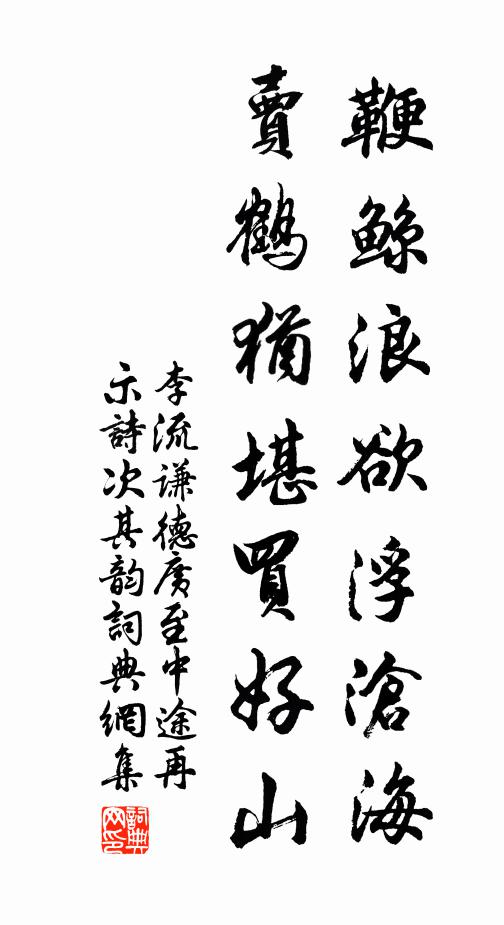 鞭鯨浪欲浮滄海
賣鶴猶堪買好山
李流謙德廣至中途再
示詩次其韵詞典網集
詞典
网印